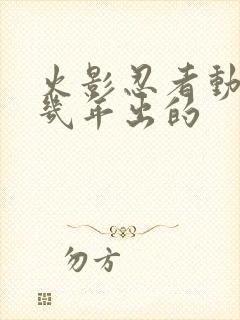 火影忍者動
幾年出的
勿方